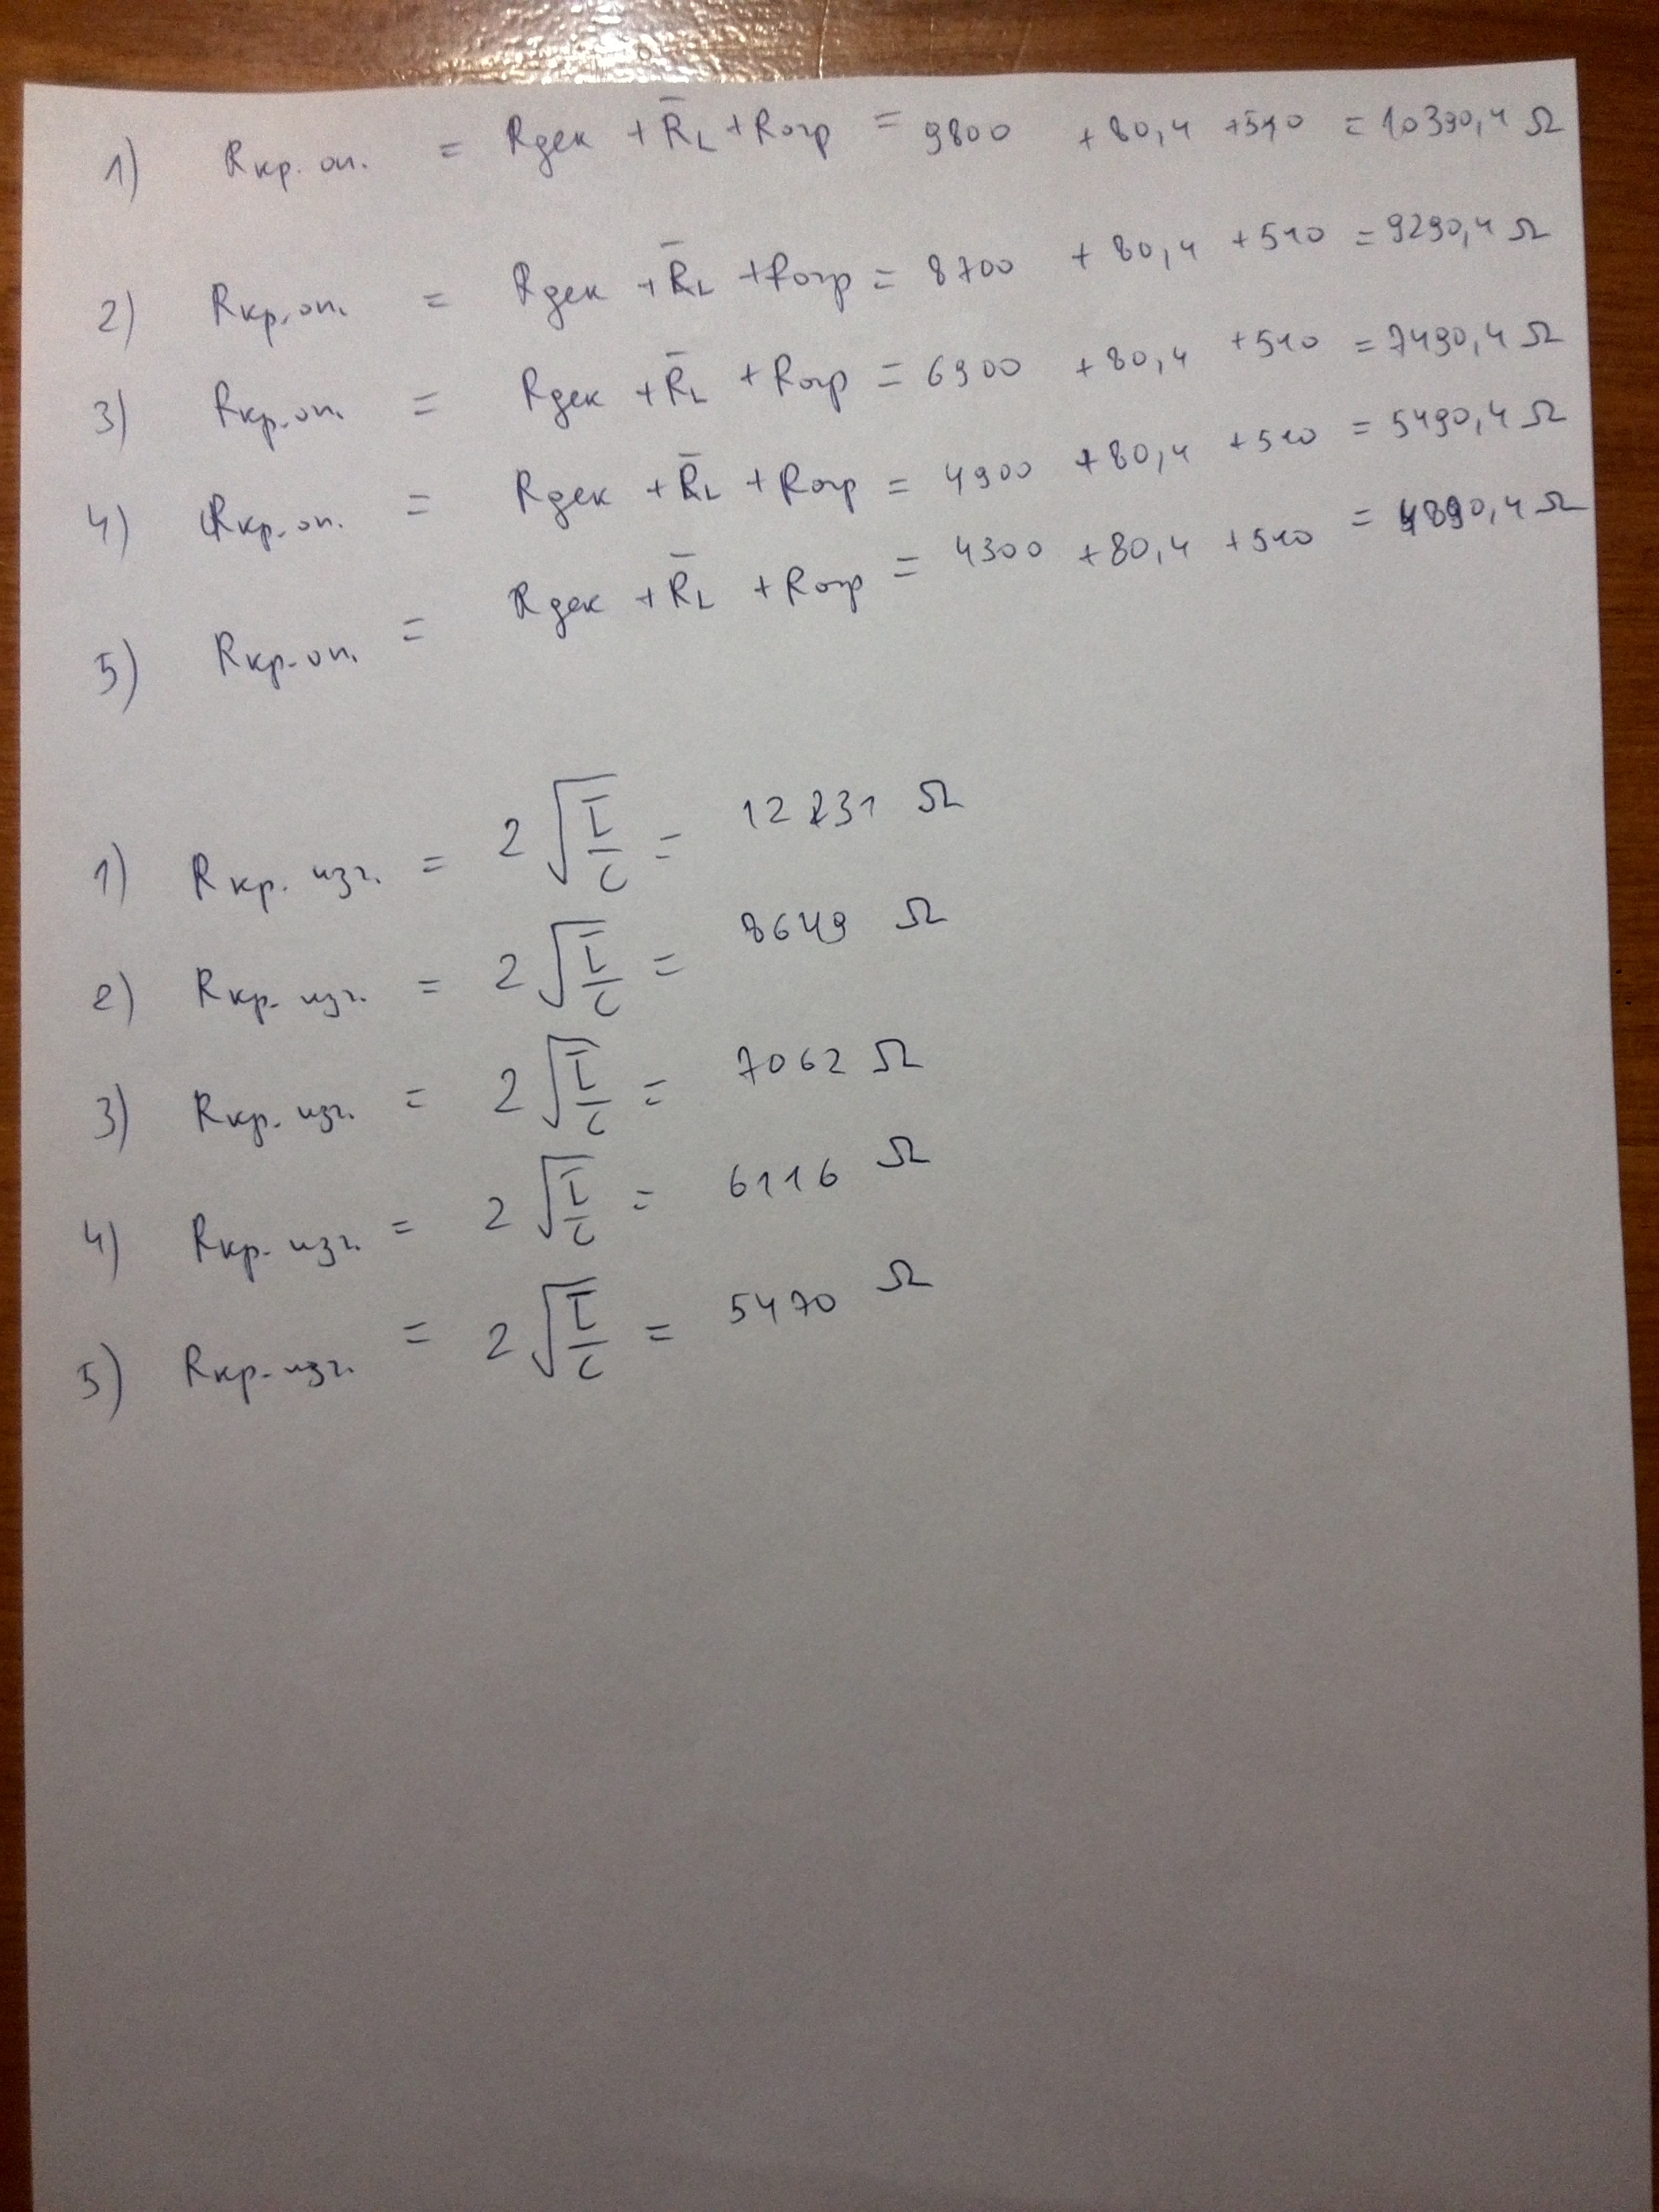 1) Rкр. оп. = Rдек + R̄L + Rогр = 9800 + 80,4 + 510 = 10390,4 Ω
2) Rкр. оп. = Rдек + R̄L + Rогр = 8700 + 80,4 + 510 = 9290,4 Ω
3) Rкр. оп. = Rдек + R̄L + Rогр = 6900 + 80,4 + 510 = 7490,4 Ω
4) Rкр. оп. = Rдек + R̄L + Rогр = 4900 + 80,4 + 510 = 5490,4 Ω
5) Rкр. оп. = Rдек + R̄L + Rогр = 4300 + 80,4 + 510 = 4890,4 Ω
1) Rкр. изч. = 2 √(L̄/C) = 12231 Ω
2) Rкр. изч. = 2 √(L̄/C) = 8649 Ω
3) Rкр. изч. = 2 √(L̄/C) = 7062 Ω
4) Rкр. изч. = 2 √(L̄/C) = 6116 Ω
5) Rкр. изч. = 2 √(L̄/C) = 5470 Ω